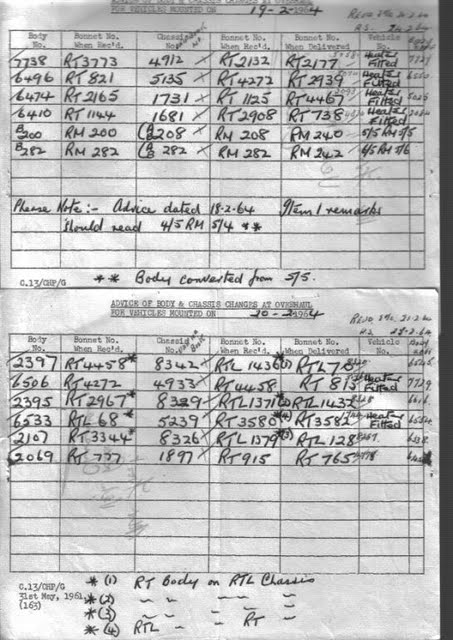 ADVICE OF BODY & CHASSIS CHANGES AT OVERHAUL
FOR VEHICLES MOUNTED ON 19-2-1964
Body No. Bonnet No. When Rec'd. Chassis No. Bonnet No. When Rec'd. Bonnet No. When Delivered Vehicle No.
7738 RT3773 4912 RT2132 RT2177 Heater Fitted
6496 RT 821 5135 RT4272 RT2939 Heater Fitted
6474 RT2165 1731 RT 1125 RT4467 Heater Fitted
6410 RT1144 1681 RT2908 RT738 Heater Fitted
B200 RM 200 B208 RM 208 RM240 5/5 RM 5/5
B282 RM 282 B282 RM 282 RM242 6/5 RM 5/6
Please Note:- Advice dated 18-2-64 Item 1 remarks
should read 4/5 RM 5/4 **
C.13/CHP/G ** Body converted from 5/5.
ADVICE OF BODY & CHASSIS CHANGES AT OVERHAUL
FOR VEHICLES MOUNTED ON 20-2-1964
Body No. Bonnet No. When Rec'd. Chassis No. Bonnet No. When Rec'd. Bonnet No. When Delivered Vehicle No.
2397 RT4458* 8342 RTL 1436
6506 RT4272 4933 RT4458 RT 815 Heater Fitted
2395 RT2967* RTL1371
6533 RTL 68* 5239 RT3580 *(4) RT3582 Heater Fitted
2107 RT3344* 8326 RTL1379 *(3) RTL 128
2069 RT 777 1897 RT915 RT 765
C.13/CHP/G
31st May, 1961
(163)
*(1) RT Body on RTL Chassis
*(2) " " " "
*(3) " " " "
*(4) RTL " " RT "